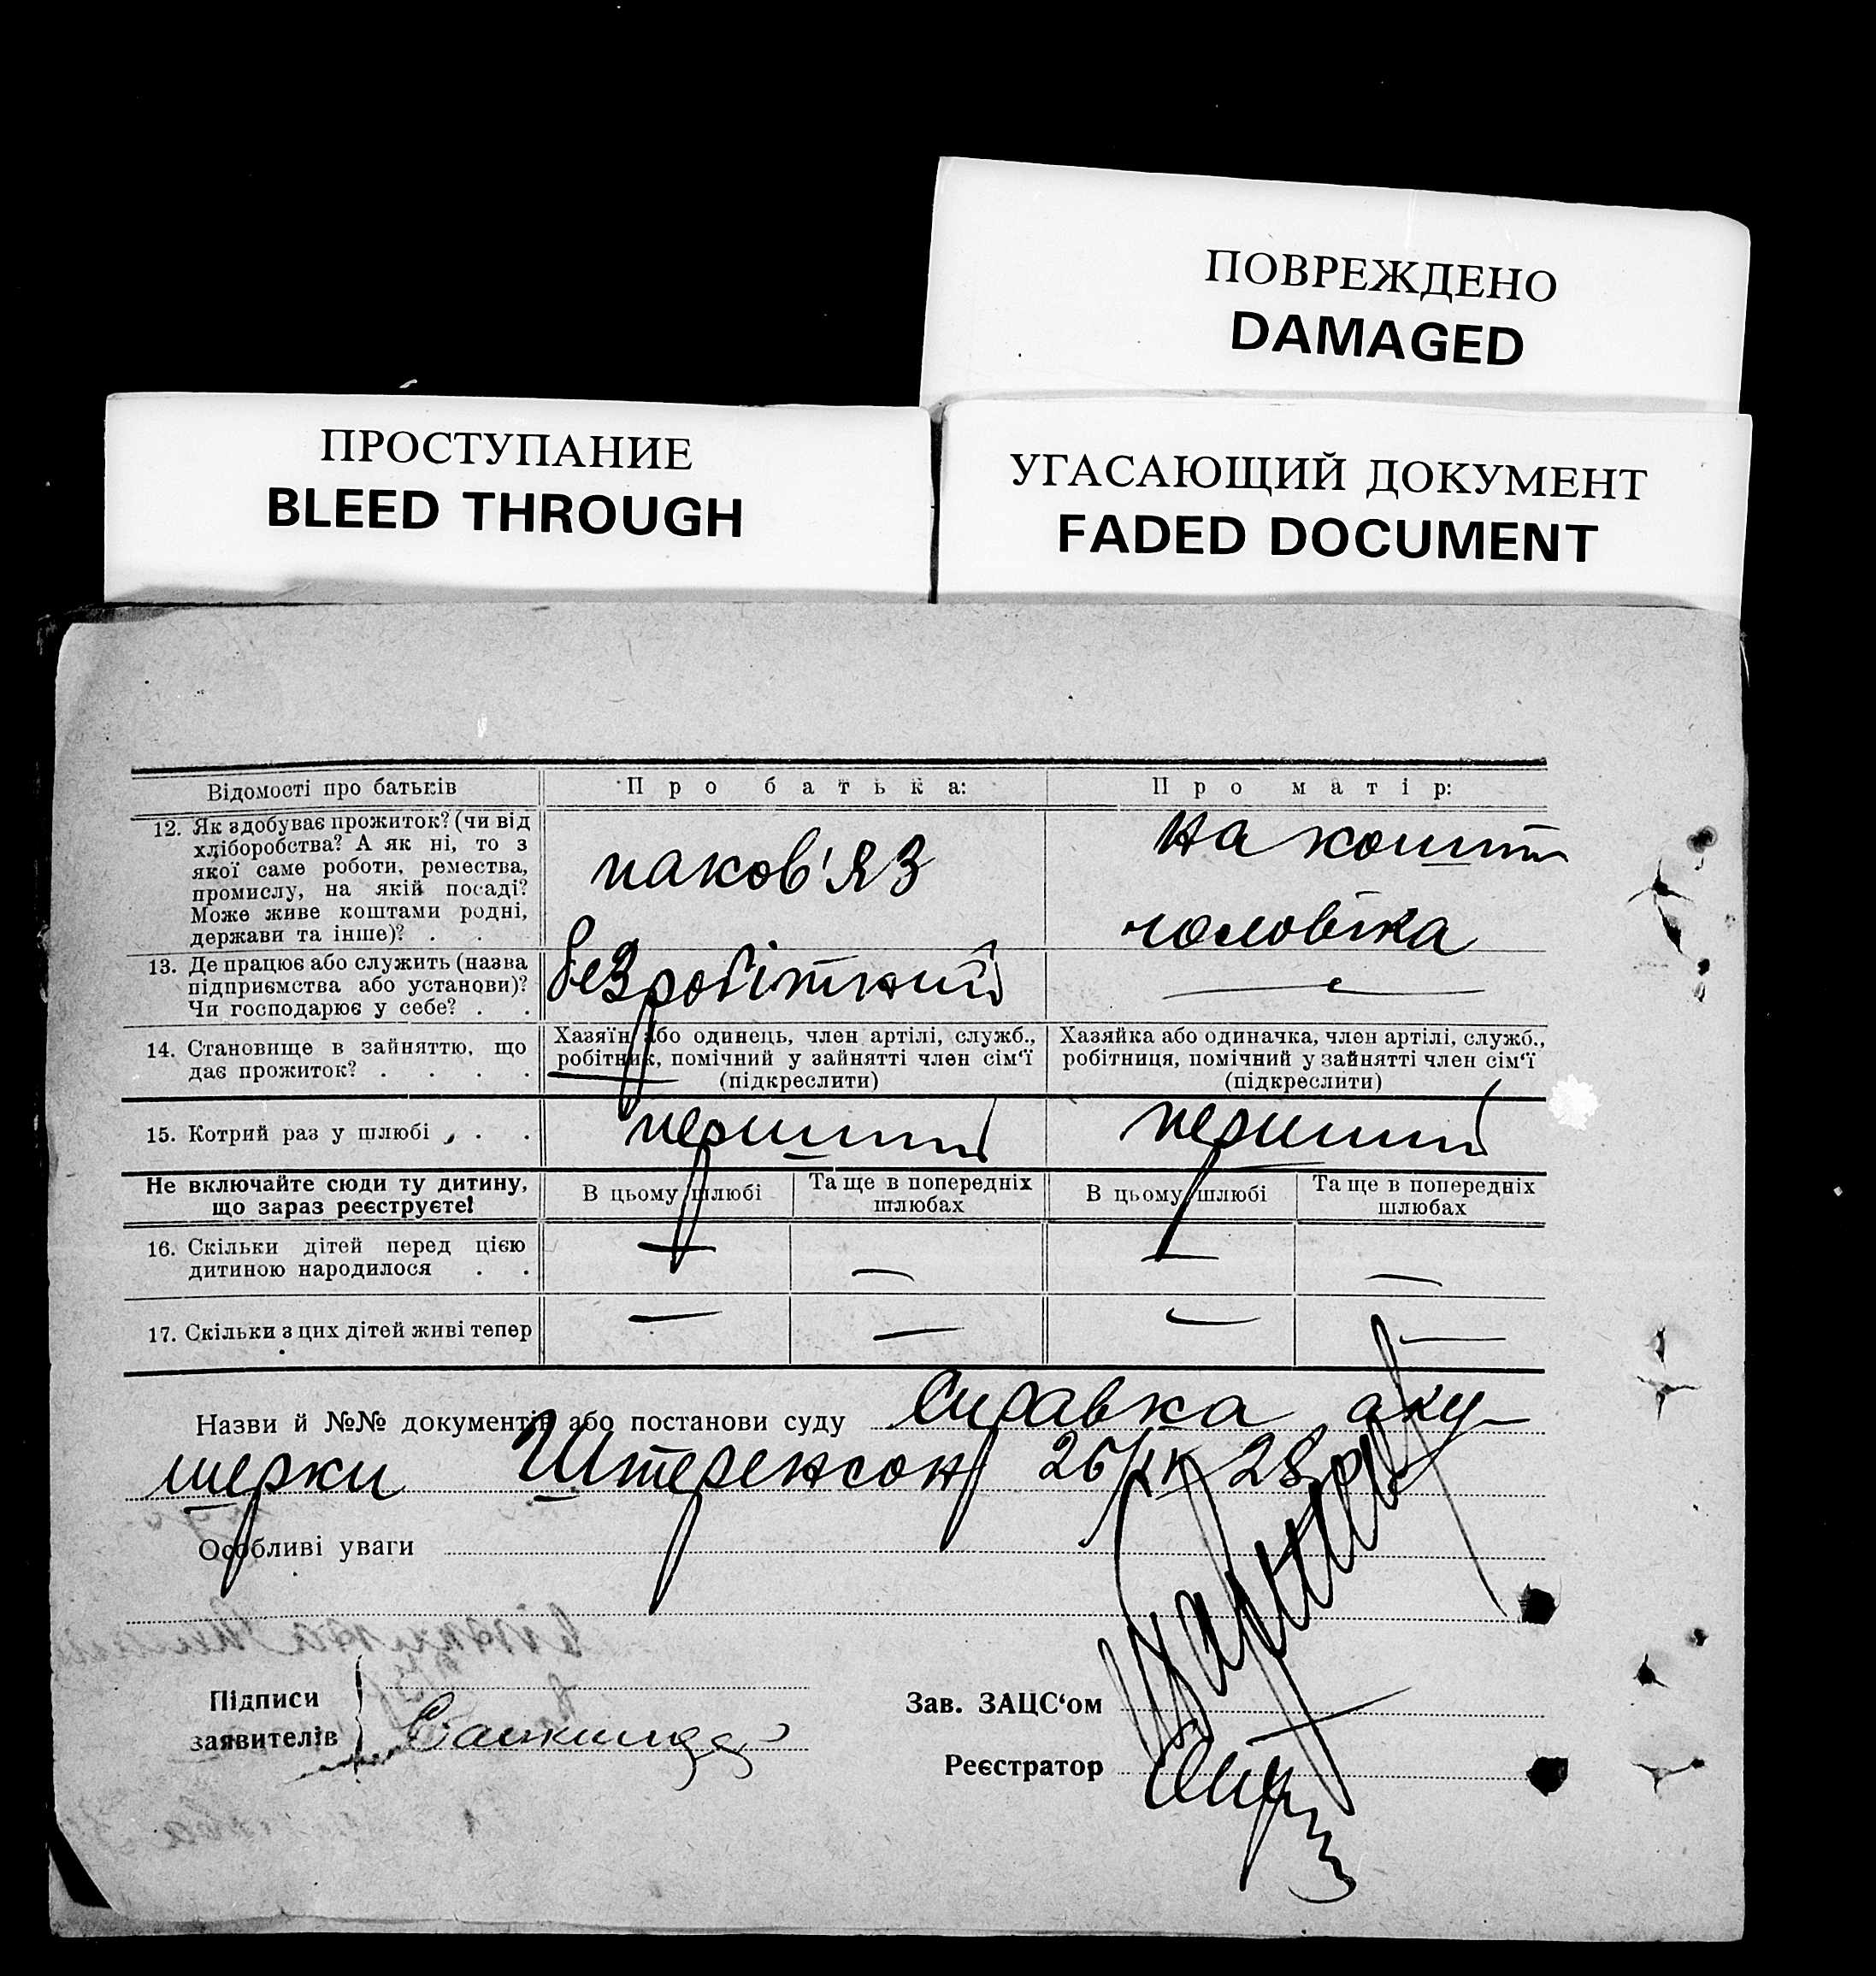 ПОВРЕЖДЕНО
DAMAGED
ПРОСТУПАНИЕ
BLEED THROUGH
УГАСАЮЩИЙ ДОКУМЕНТ
FADED DOCUMENT
Відомості про батьків
Про батька:
Про матір:
12. Як здобуває прожиток? (чи від
хліборобства? А як ні, то з
якої саме роботи, ремества,
промислу, на якій посаді?
Може живе коштами родні,
держави та інше)? . .
паков'яз
на кошти
чоловіка
13. Де працює або служить (назва
підприємства або установи)?
Чи господарює у себе? . .
безробітний
—
14. Становище в зайняттю, що
дає прожиток? . . . .
Хазяїн або одинець, член артілі, служб.,
робітник, помічний у зайнятті член сім'ї
(підкреслити)
Хазяйка або одиначка, член артілі, служб.,
робітниця, помічний у зайнятті член сім'ї
(підкреслити)
15. Котрий раз у шлюбі . . .
перший
перший
Не включайте сюди ту дитину,
що зараз реєструєте!
В цьому шлюбі
Та ще в попередніх
шлюбах
В цьому шлюбі
Та ще в попередніх
шлюбах
16. Скільки дітей перед цією
дитиною народилося . .
— — — —
17. Скільки з цих дітей живі тепер
— — — —
Назви й №№ документів або постанови суду Справка аку-
шерки Штеренсон
Особливі уваги
Підписи
заявителів
Зав. ЗАЦС'ом
Реєстратор